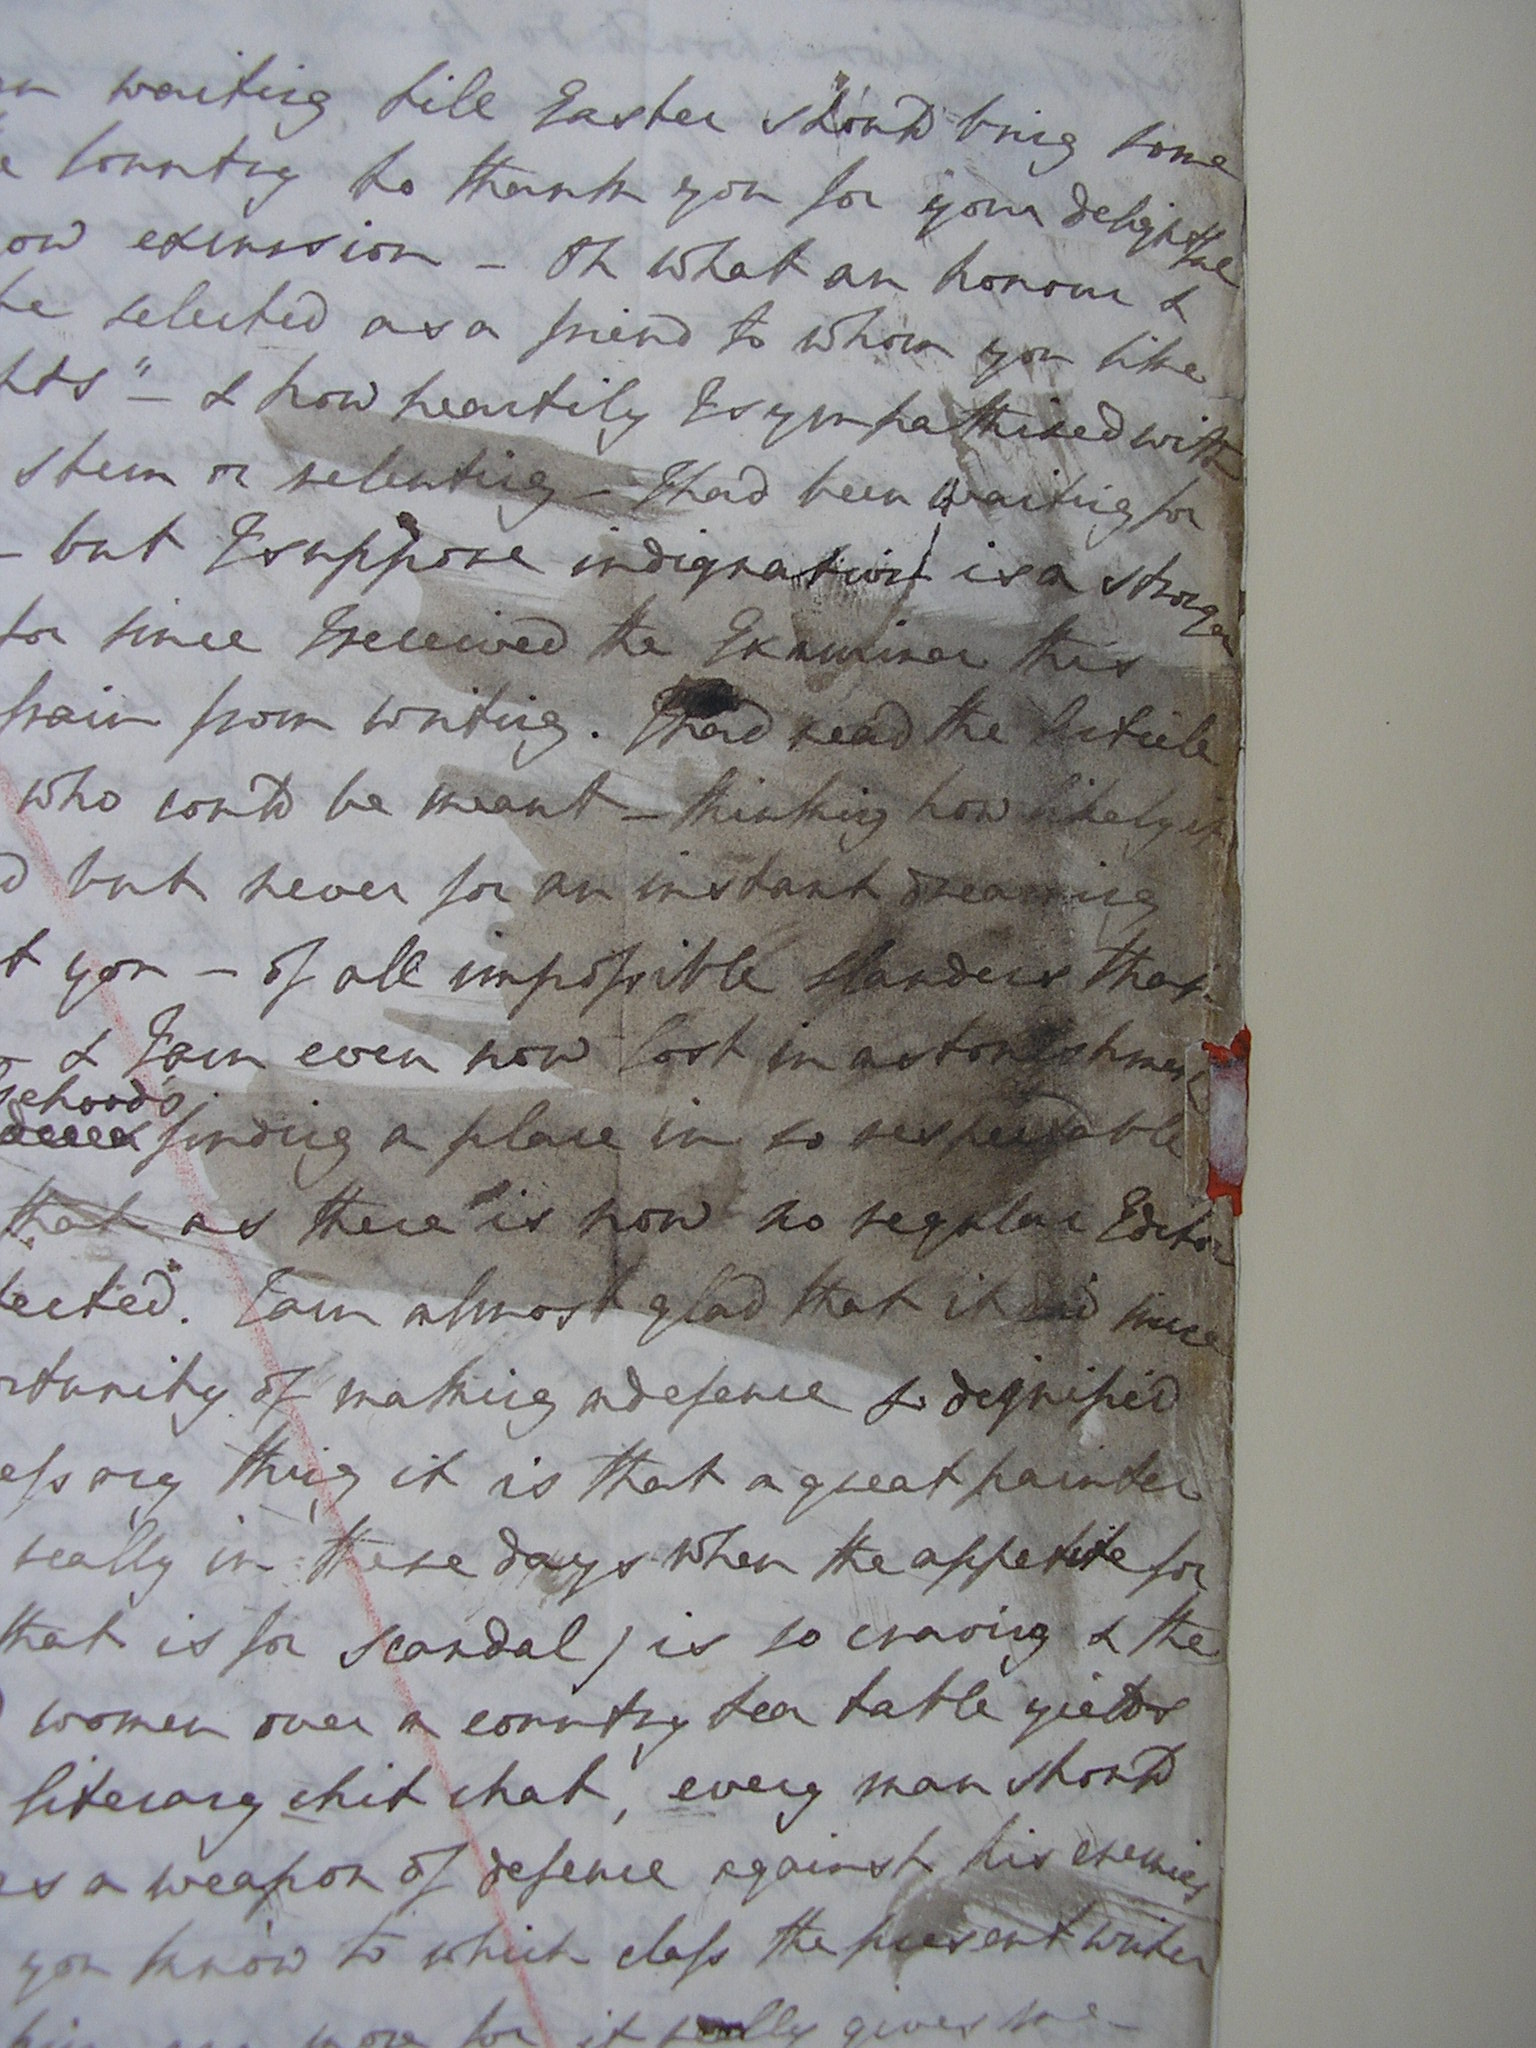 waiting till Easter should bring some
country to thank you for your delightful
excursion - Oh what an honour &
be selected as a friend to whom you like
hts" - & how heartily I sympathised with
stern or relenting - I had been waiting for
- but I suppose indignation is a stronger
for since I received the Examiner this
frain from writing. I had read the Article
who could be meant - thinking how likely it
d but never for an instant dreaming
t you - of all impossible slanders that
& I am even now lost in astonishment
sehoods
finding a place in so respectable
that as there is now no regular Editor
tected. I am almost glad that it did since
rtunity of making a defence so dignified
essary thing it is that a great painter
really in these days when the appetite for
that is for scandal) is so craving & the
d women over a country tea table yields
literary chit chat, every man should
as a weapon of defence against his enemies
you know to which class the present writer
more for it really gives me